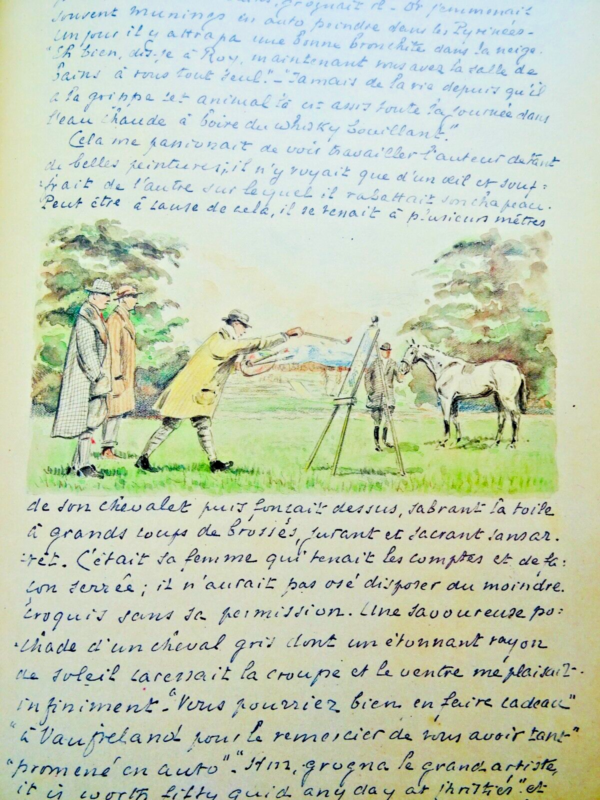 souvent Munings en auto peindre dans les Pyrénées-
Un jour il y attrapa une bonne bronchite dans la neige.
"Eh bien, dis-je à Roy, maintenant vous avez la salle de
bains à vous tout seul."-"Jamais de la vie depuis qu'il
a la grippe cet animal là est assis toute la journée dans
l'eau chaude à boire du whisky bouillant."
Cela me passionait de voir travailler l'auteur de tant
de belles peintures; il n'y voyait que d'un œil et souf-
frait de l'autre sur lequel il rabattait son chapeau.
Peut être à cause de cela, il se tenait à plusieurs mètres
de son chevalet puis fonçait dessus, sabrant la toile
à grands coups de brosses, jurant et sacrant sans ar-
rêt. C'était sa femme qui tenait les comptes et de fa-
çon serrée; il n'aurait pas osé disposer du moindre
croquis sans sa permission. Une savoureuse po-
chade d'un cheval gris dont un étonnant rayon
de soleil caressait la croupe et le ventre me plaisait
infiniment-"Vous pourriez bien en faire cadeau"
"à Vaufreland pour le remercier de vous avoir tant"
"promené en auto"-"Hm, grogna le grand artiste,
it is worth fifty quid any day at Christies" et